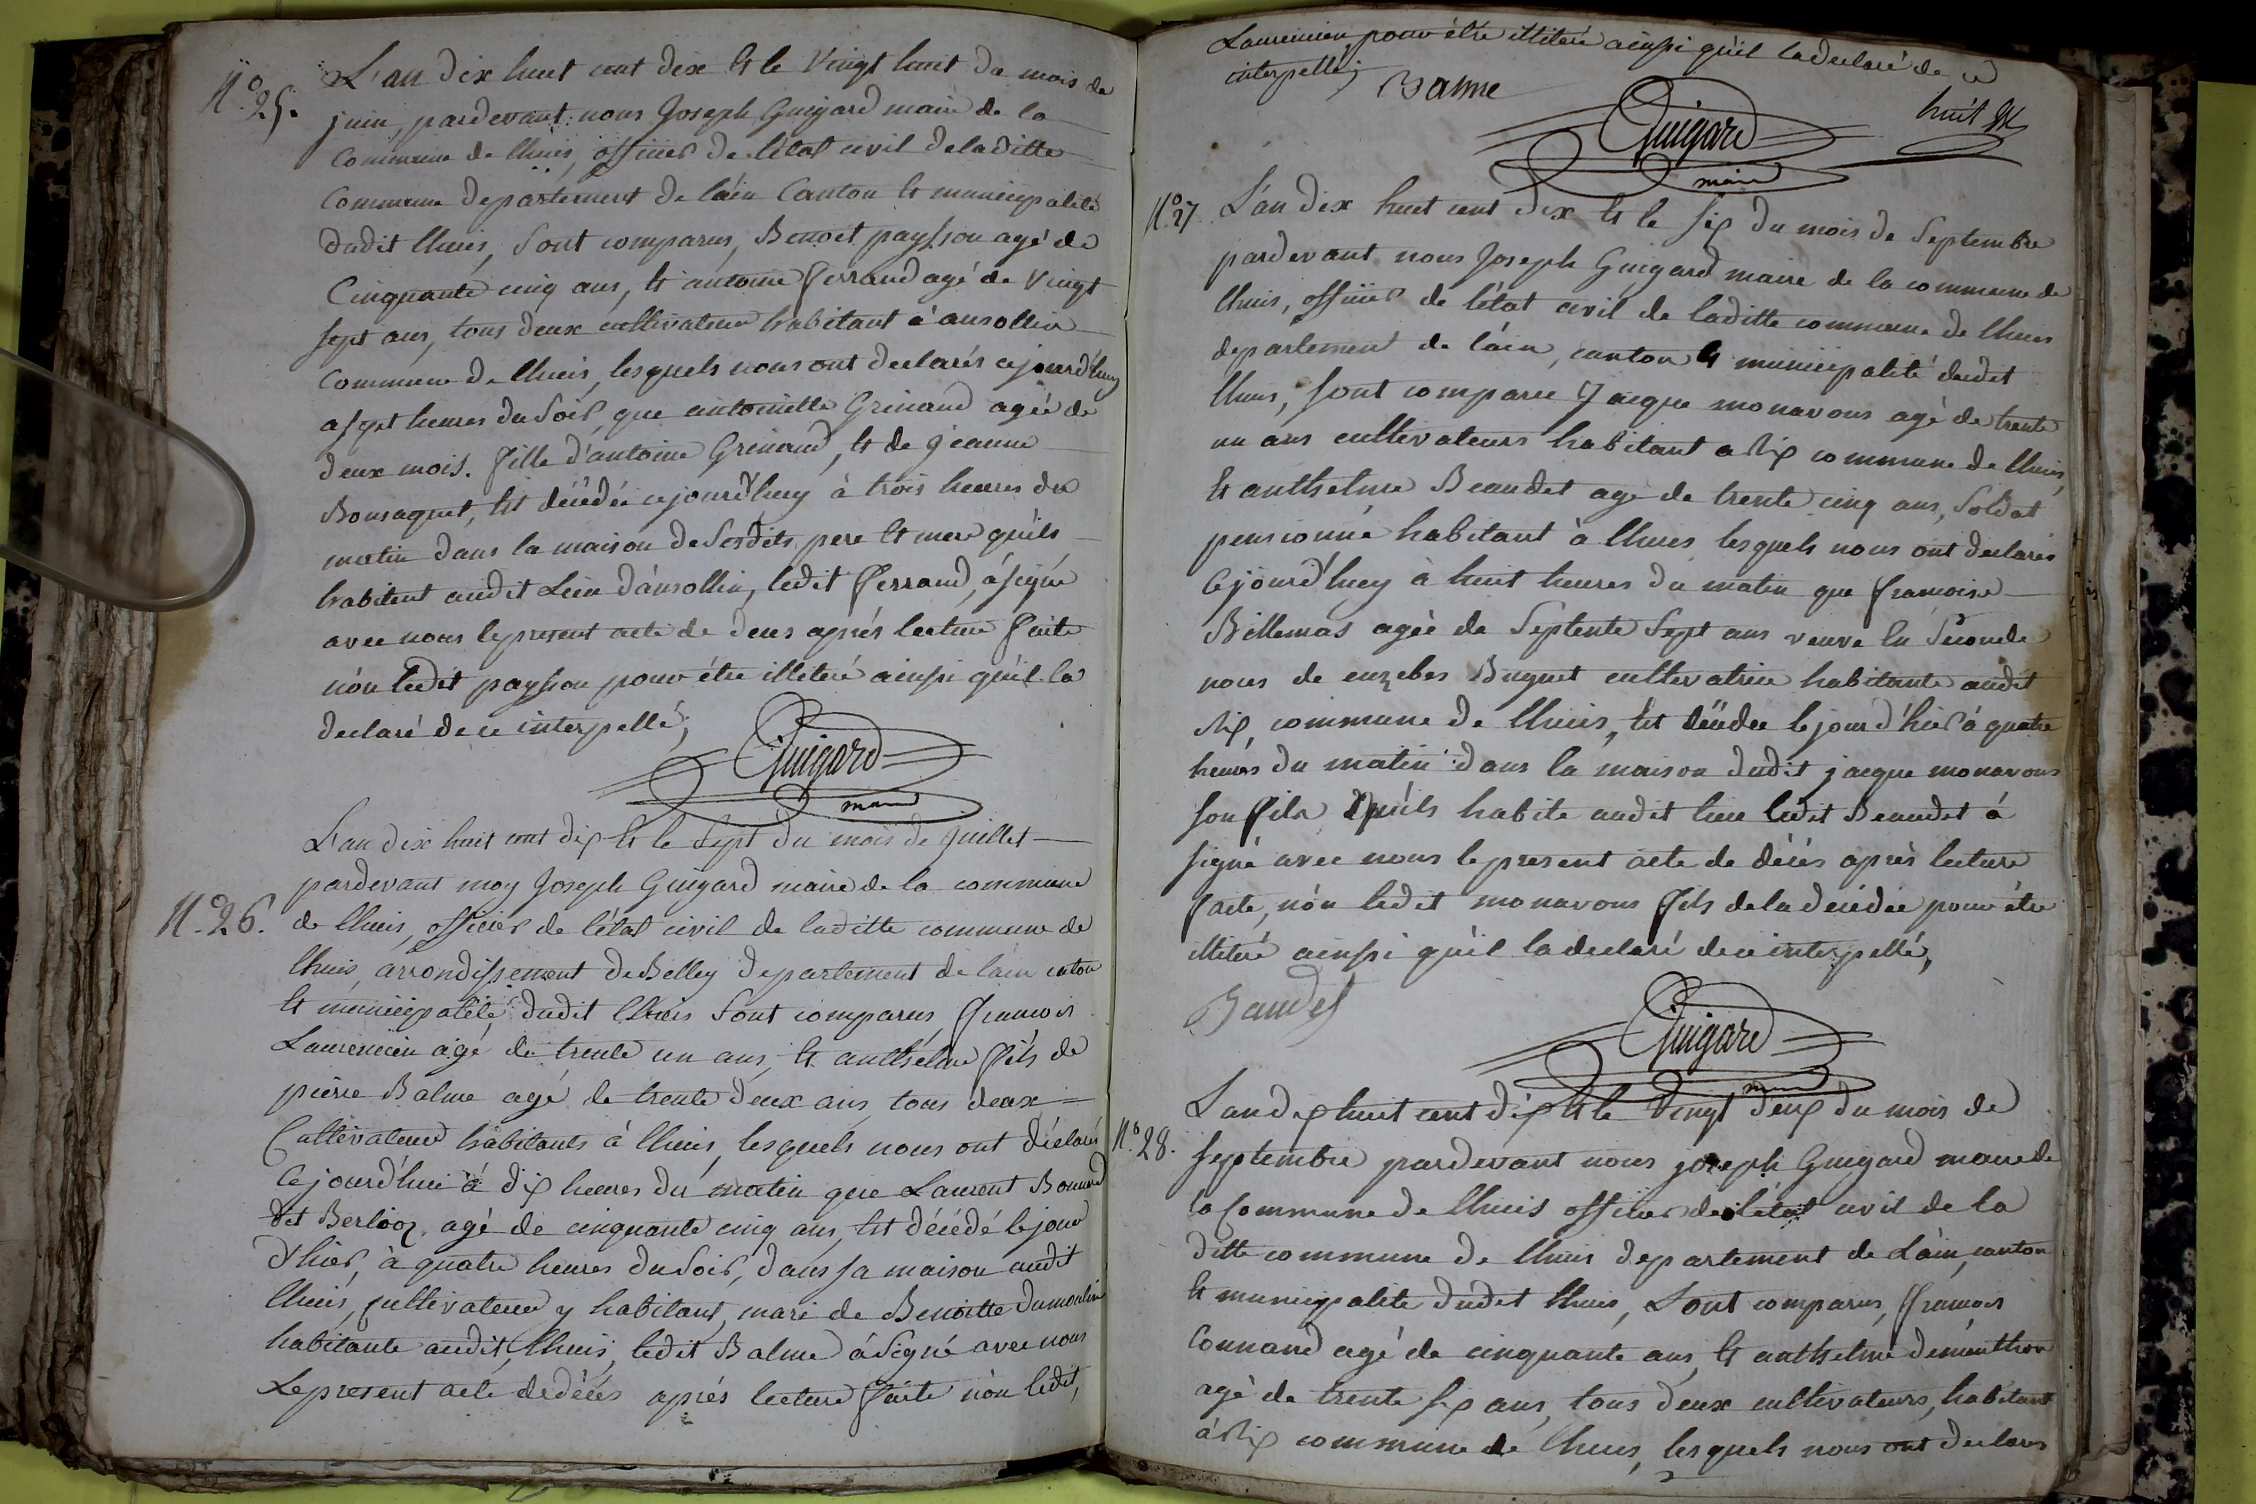 N.° 25.
L'an dix huit cent dix et le Vingt huit du mois de
juin, pardevant nous Joseph Guigard maire de la
Commune de lhuis, officier de l'état civil de laditte
Commune departement de l'ain Canton et municipalité
dudit lhuis, Sont comparus, Benoit paysson agé de
Cinquante cinq ans, et antoine ferrand agé de Vingt
sept ans, tous deux cultivateur habitant à ansollin
Commune de lhuis, lesquels nous ont declarés cejourd'huy
a sept heures du Soir, que antoinette Grinand agée de
deux mois. fille d'antoine Grinand, et de jeanne
Bonsaquet, est décédée cejourd'huy à trois heures du
matin dans la maison de Sesdits pere et mere qu'ils
habitent audit Lieu d'ansollin, ledit ferrand, à signé
avec nous le present acte de deces aprés lecture faite
nón ledit paysson pour étre illiteré ainsi qu'il la
declaré de ce interpellé,
Guigard
maire
N.° 26.
L'an dix huit cent dix et le Sept du mois de juillet
pardevant moy Joseph Guigard maire de la commune
de lhuis, officier de l'état civil de laditte commune de
lhuis, arrondissement de Belley departement de l'ain canton
et municipalité dudit lhuis Sont comparus, francois
Laurencin agé de trente un ans, et anthelme fils de
pierre Balme agé de trente deux ans, tous deux
Cultivateur habitants à lhuis, lesquels nous ont déclarés
Cejourd'hui à dix heures du matin que Laurent Bonnard
dit Berlioz, agé de cinquante cinq ans, est décédé lejour
d'hier, à quatre heures du Soir, dans sa maison audit
lhuis, Cultivateur y habitant, mari de Benoitte dumoulin
habitante audit, lhuis, ledit Balme à Signé avec nous
Le present acte de décés aprés lecture faite nón ledit,
Laurencin pour étre illiteré ainsi qu'il la declaré de ce
interpellé;
Balme
Guigard
maire
huit
N.° 27
L'an dix huit cent dix et le six du mois de Septembre
pardevant nous Joseph Guigard maire de la commune de
lhuis, officier de l'état civil de laditte commune de lhuis
departement de l'ain, canton et municipalité dudit
lhuis, sont comparu Jacque monavons agé de trente
un ans cultivateurs habitant a Rix commune de lhuis,
et anthelme Beaudet agé de trente cinq ans, Soldat
pensionné habitant à lhuis lesquels nous ont declarés
Cejourd'huy à huit heures du matin que francoise
Billemas agée de Septente Sept ans veuve en Seconde
noces de euzebes Buguet cultivatrice habitante audit
Rix, commune de lhuis, est décédée lejour d'hier à quatre
heures du matin dans la maison dudit jacque monavons
son fils qu'ils habite audit lieu ledit Beaudet à
signé avec nous le present acte de décés aprés lecture
faite, nón ledit monavons fils de la décédée pour étre
illiteré ainsi qu'il la declaré de ce interpellé,
Baudet
Guigard
maire
N.° 28.
L'an dix huit cent dix et le Vingt deux du mois de
Septembre pardevant nous joseph Guigard maire de
la Commune de lhuis officier de l'état civil de la
ditte commune de lhuis departement de L'ain, canton
et municipalité dudit lhuis, Sont comparus, francois
Connand agé de cinquante ans, et anthelme demonthion
agé de trente six ans, tous deux cultivateurs, habitant
à Rix commune de lhuis, lesquels nous ont declarés